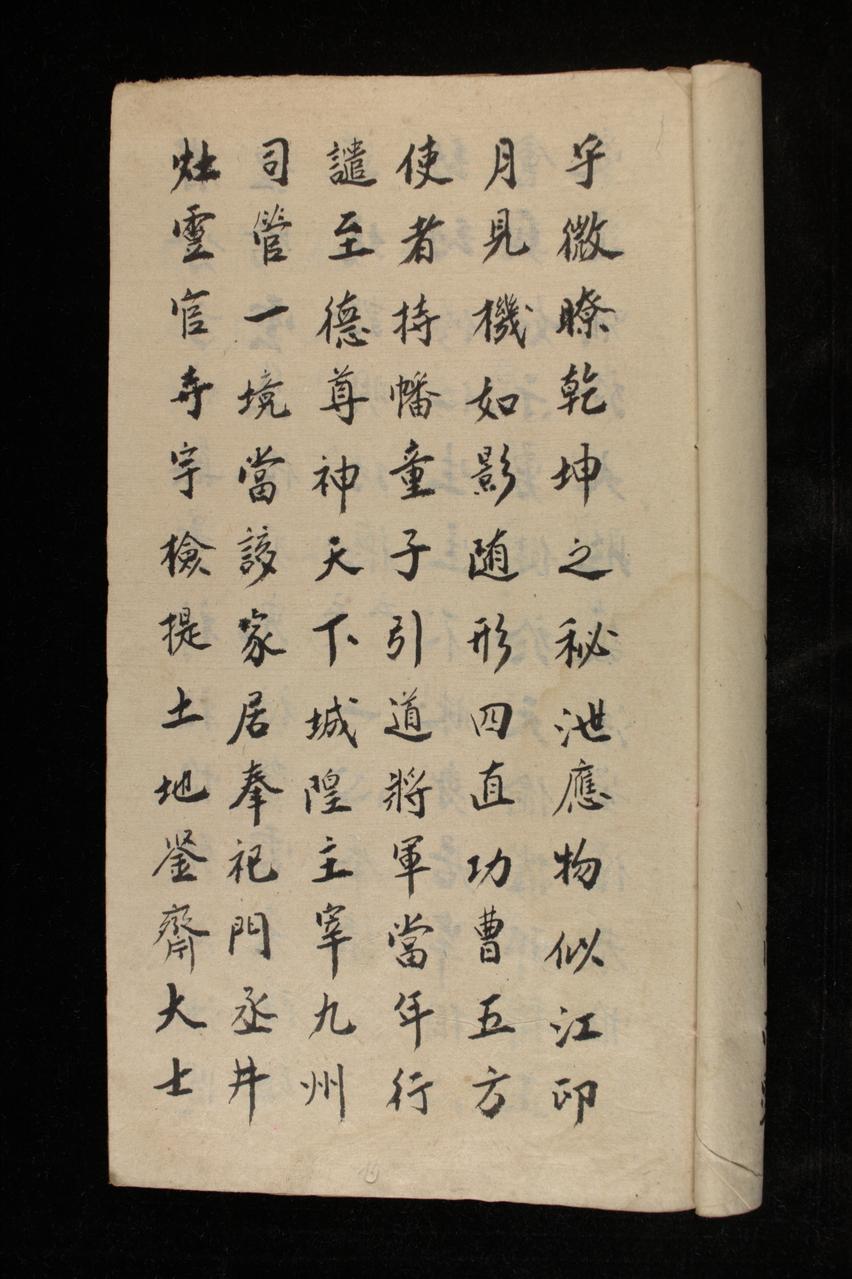 乎微瞭乾坤之秘泄應物似江印
月見機如影随形四直功曹五方
使者持幡童子引道將軍當年行
譴至德尊神天下城隍主宰九州
司管一境當該家居奉祀門丞井
灶霊官寺宇檢提土地鉴齋大士